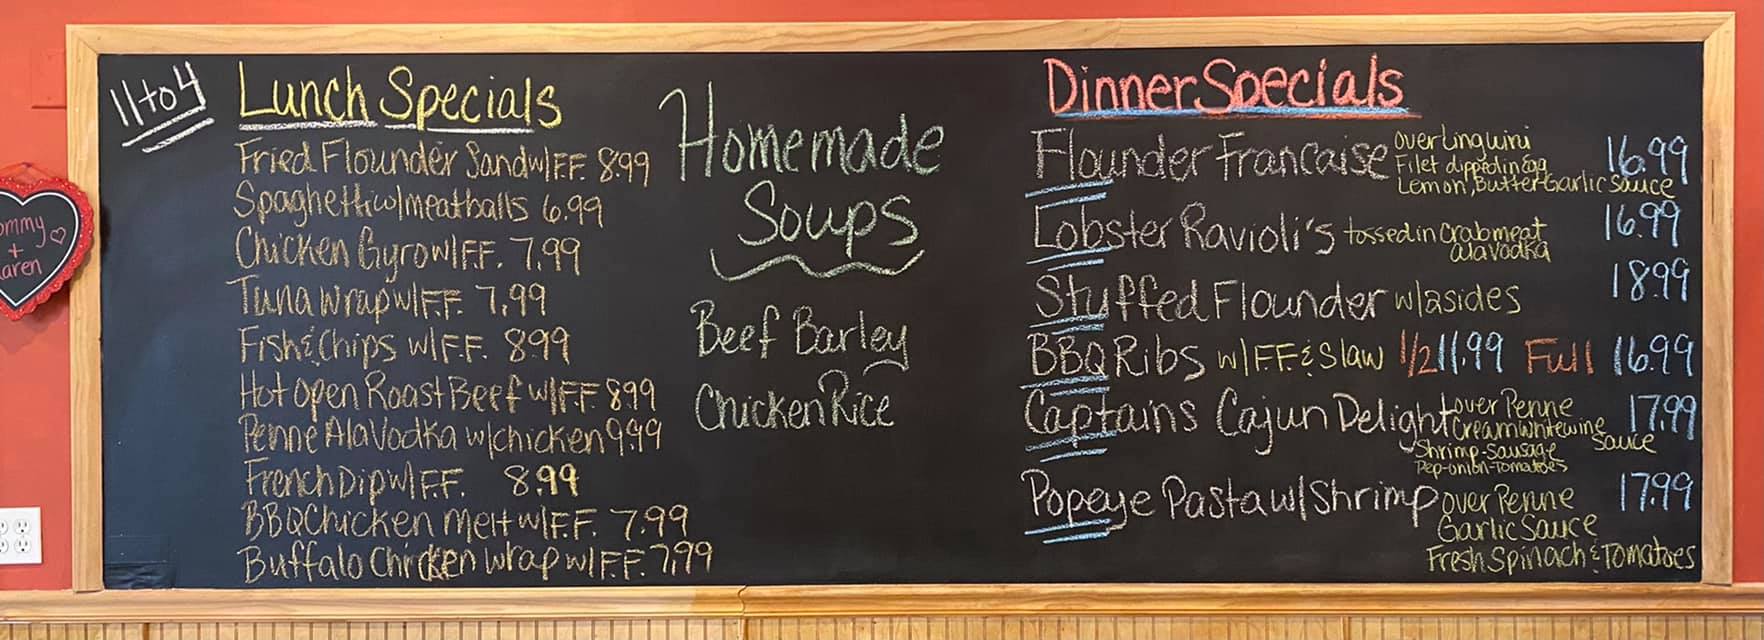 11 to 4
Lunch Specials
Fried Flounder Sand w/F.F. 8.99
Spaghetti w/meatballs 6.99
Chicken Gyro w/F.F. 7.99
Tuna Wrap w/F.F. 7.99
Fish & Chips w/F.F. 8.99
Hot Open Roast Beef w/F.F. 8.99
Penne Ala Vodka w/chicken 9.99
French Dip w/F.F. 8.99
BBQ Chicken Melt w/F.F. 7.99
Buffalo Chicken Wrap w/F.F. 7.99
Homemade
Soups
Beef Barley
Chicken Rice
Dinner Specials
Flounder Francaise over Linguini 16.99
Filet dipped in egg
Lemon, Butter Garlic Sauce
Lobster Ravioli's tossed in Crabmeat 16.99
ala Vodka
Stuffed Flounder w/2 sides 18.99
BBQ Ribs w/F.F. & Slaw 1/2 11.99 Full 16.99
Captains Cajun Delight over Penne 17.99
Cream white wine
Sauce
Shrimp-Sausage
Pep-onion-Tomatoes
Popeye Pasta w/Shrimp over Penne 17.99
Garlic Sauce
Fresh Spinach & Tomatoes
ommy
+
aren